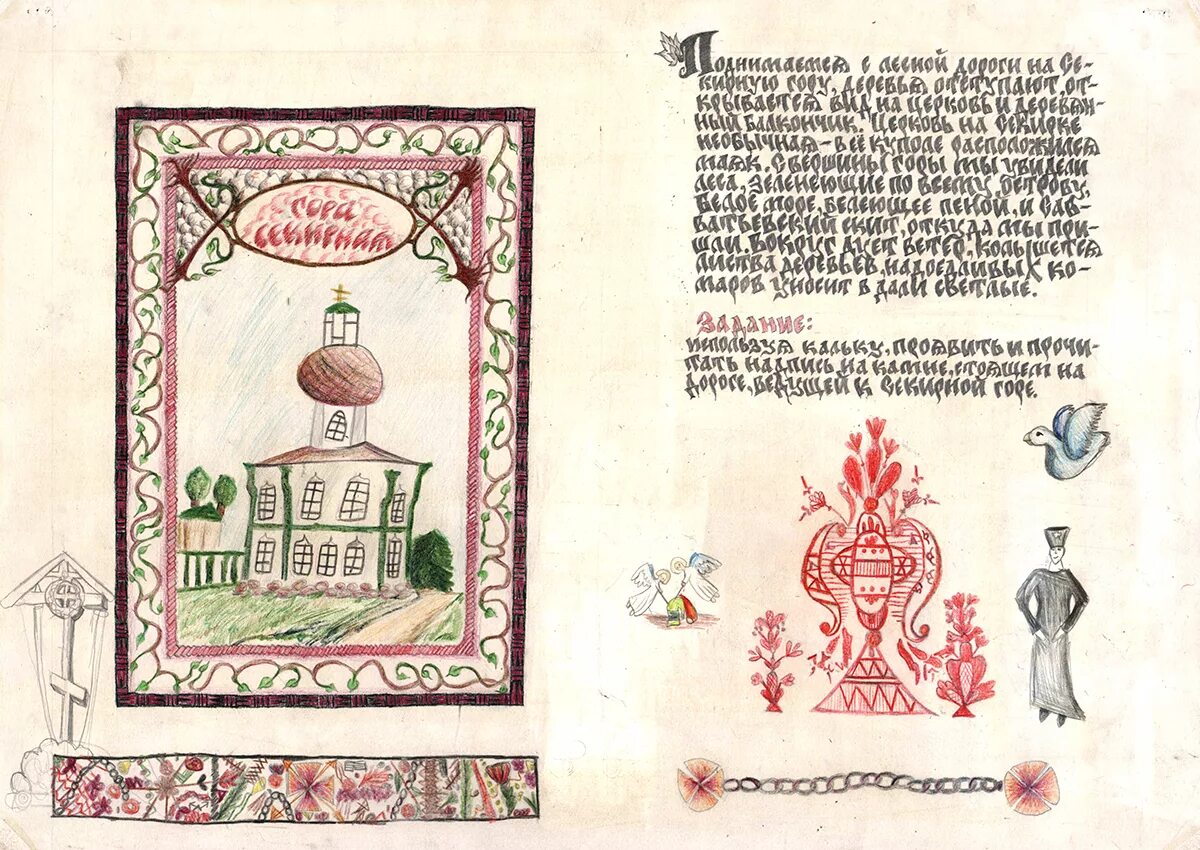 Гора
Секирная
Поднимаемся с лесной дороги на Се-
кирную гору, деревья отступают, от-
крывается вид на церковь и деревян-
ный балкончик. Церковь на Секирке
необычная - в её куполе расположился
маяк. С вершины горы мы увидели
леса, зеленеющие по всему острову,
Белое море, белеющее пеной, и Сав-
ватьевский скит, откуда мы при-
шли. Вокруг дует ветер, колышется
листва деревьев, надоедливых ко-
маров уносит в дали светлые.
Задание:
используя кальку, проявить и прочи-
тать надпись на камне, стоящем на
дороге, ведущей к Секирной горе.